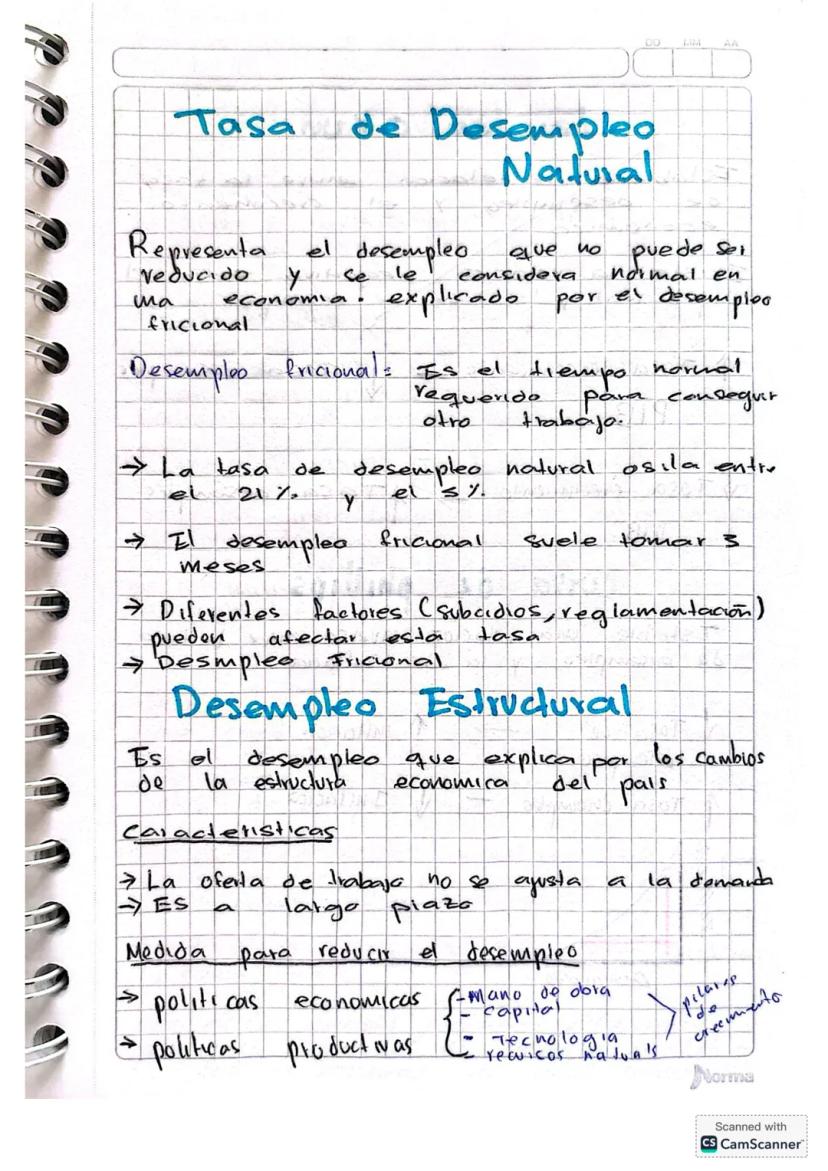 DD MM AA
Tasa de Desempleo
Natural
Representa el desempleo que no puede ser
reducido y se le considera normal en
una economia. explicado por el desempleo
friccional
Desempleo friccional: Es el tiempo normal
requerido para conseguir
otro trabajo.
→ La tasa de desempleo natural osila entre
el 21 %. y el 5 %.
→ El desempleo friccional suele tomar 3
meses
→ Diferentes factores (subcidios, reglamentación)
pueden afectar esta tasa
→ Desmpleo Friccional
Desempleo Estructural
Es el desempleo que explica por los cambios
de la estructura economica del pais
Caracteristicas
→ La oferta de trabajo no se ajusta a la demanda
→ ES a largo plazo
Medida para reducir el desempleo
→ politicas economicas
→ politicas productivas
- Mano de obra
- capital
- Tecnologia
- recuicos naturals
pilares
de
crecimiento
Norma
Scanned with
CS CamScanner